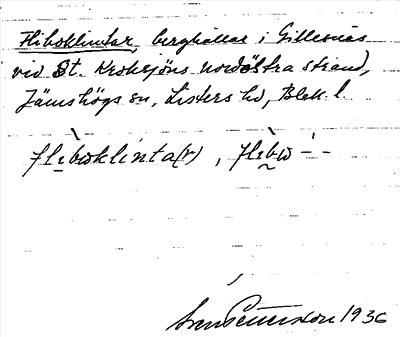 Fliboklintar, berghällar i Gillesnäs
vid St. Kroksjöns nordöstra strand,
Jämshögs sn, Listers hd, Blek. l.
flìbωklinta(r), flìbω–'–
Sven Pettersson 1936